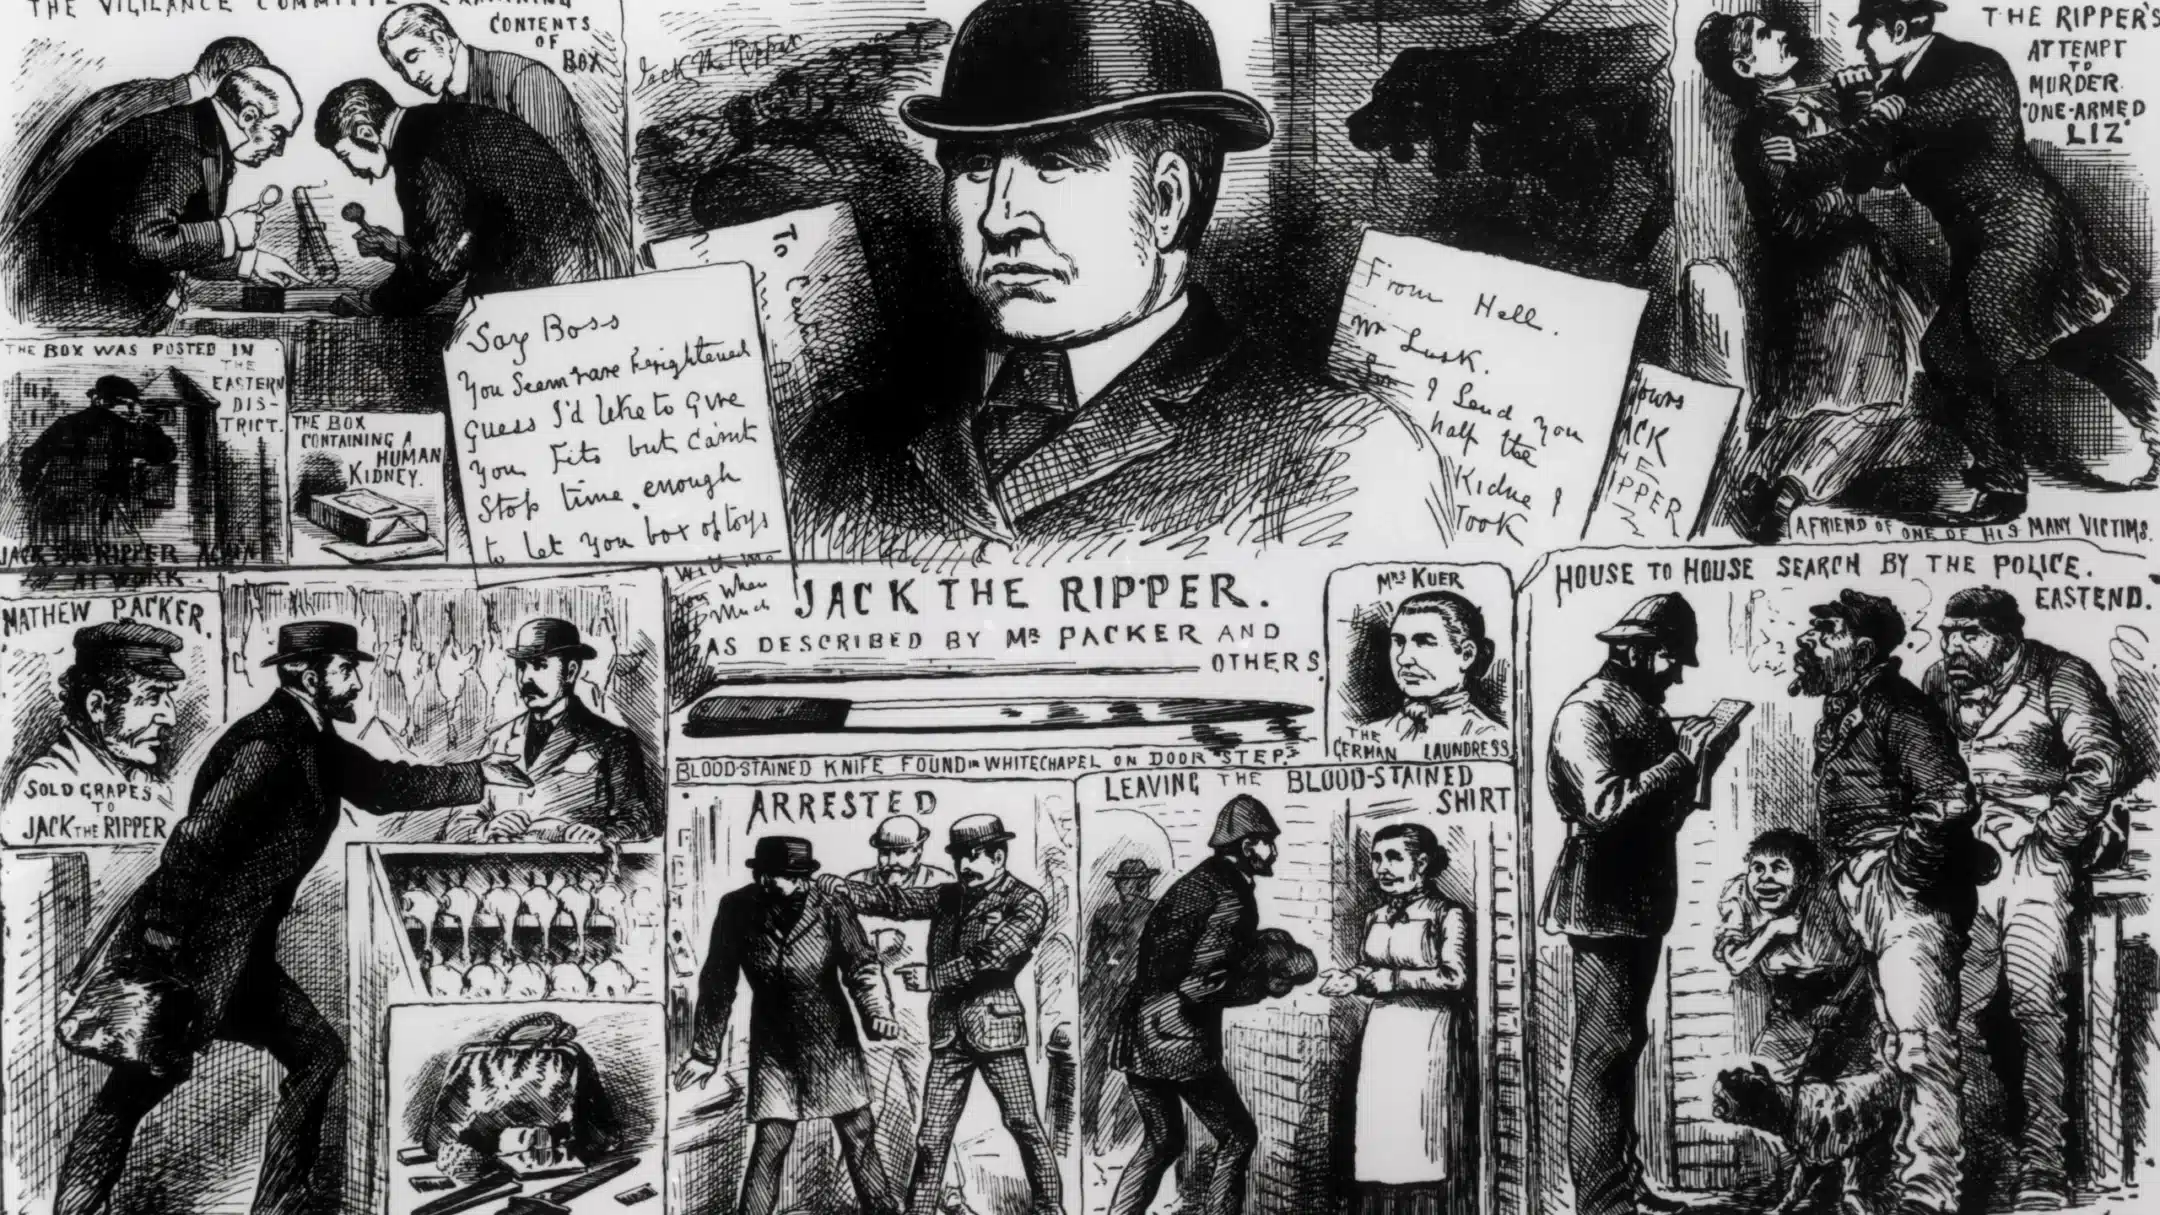 THE VIGILANCE COMMITTEE EXAMINING
CONTENTS
OF
BOX
THE BOX WAS POSTED IN
THE
EASTERN
DIS-
TRICT.
JACK THE RIPPER AGAIN
AT WORK.
THE BOX
CONTAINING A
HUMAN
KIDNEY.
Jack the Ripper
To
Say Boss
You Seem rare frightened
Guess I'd like to give
you fits but can't
Stop time enough
to let you box of toys
with me
you when
Much
From Hell.
Mr Lusk.
Sor I Send you
half the
Kidne I
Took
Yours
JACK
THE
RIPPER
THE RIPPER'S
ATTEMPT
TO
MURDER
"ONE-ARMED
LIZ"
A FRIEND OF ONE OF HIS MANY VICTIMS.
MATHEW PACKER.
SOLD GRAPES
TO
JACK THE RIPPER
JACK THE RIPPER.
AS DESCRIBED BY MR PACKER AND
OTHERS
BLOOD-STAINED KNIFE FOUND IN WHITECHAPEL ON DOOR "STEP."
MRS KUER
THE
GERMAN LAUNDRESS
ARRESTED
LEAVING THE BLOOD-STAINED
SHIRT
HOUSE TO HOUSE SEARCH BY THE POLICE.
EASTEND.